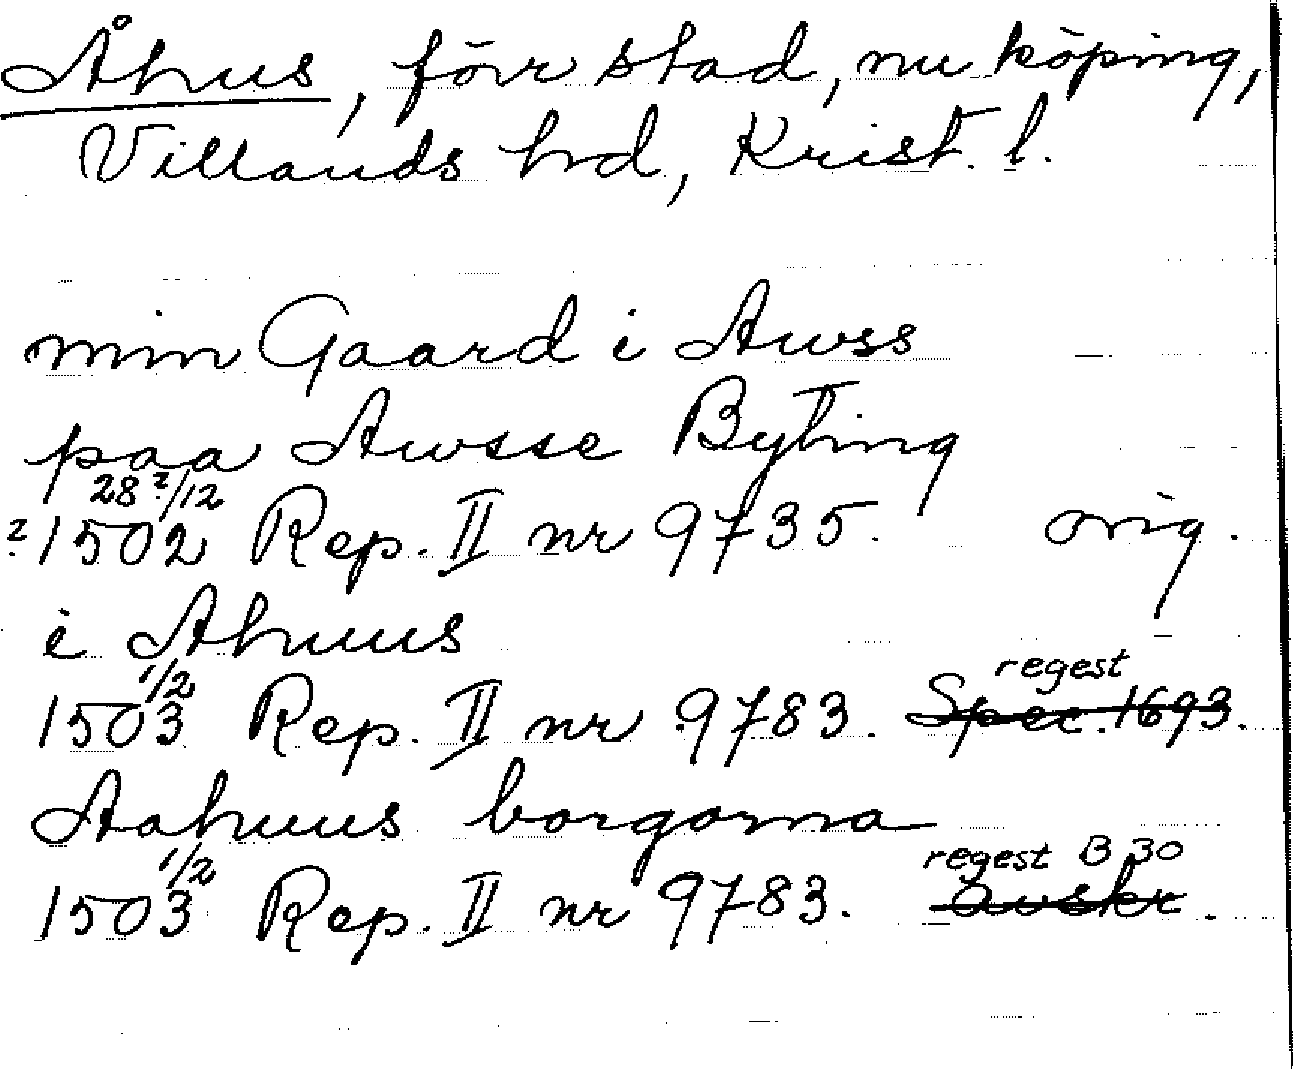 Åhus, förr stad, nu köping,
Villands hd, Krist. l.
min Gaard i Awss
paa Awsse Byting
28?/12
?1502 Rep. II nr 9735. orig.
i Ahuus
1/2 regest
1503 Rep. II nr 9783. Spec. 1693.
Aahuus borgorna
1/2 regest B 30
1503 Rep. II nr 9783. avskr.